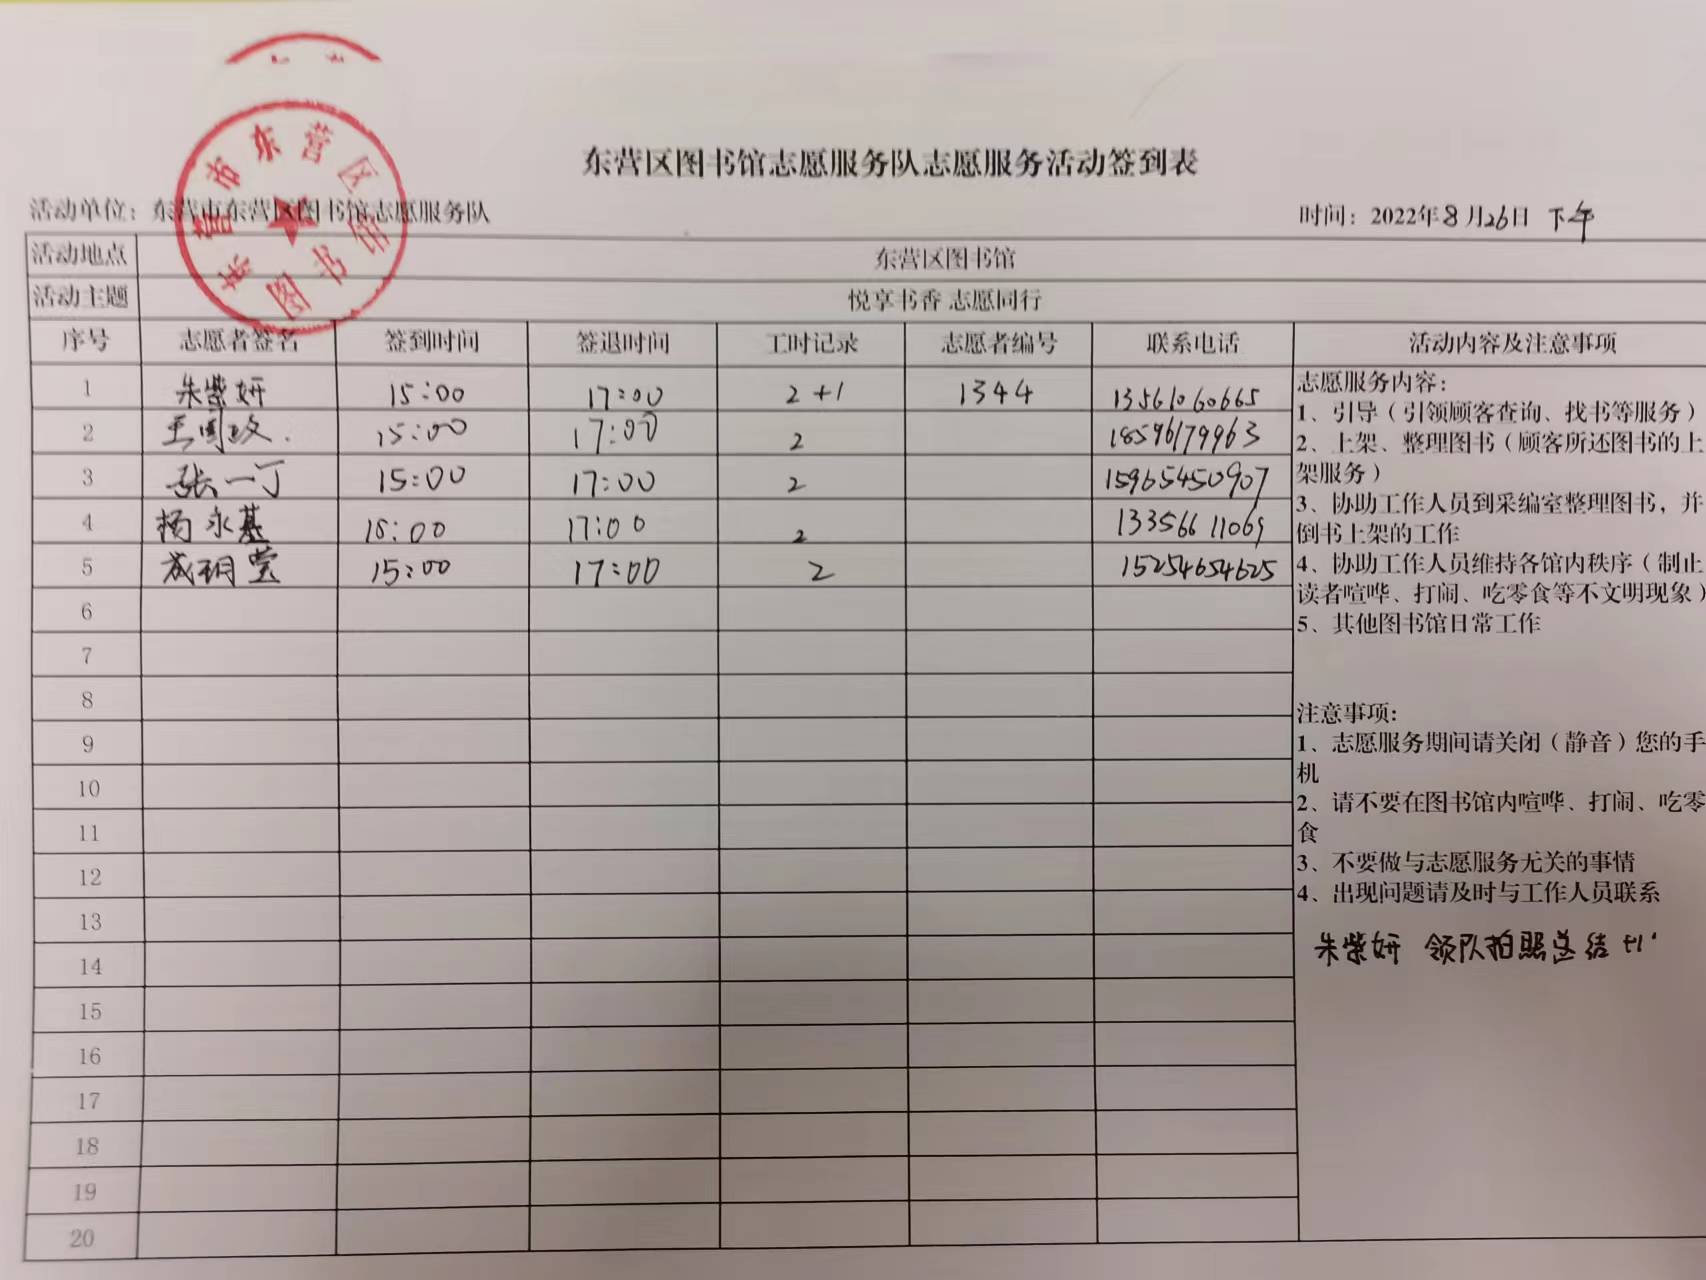 东营市东营区图书馆
东营区图书馆志愿服务队志愿服务活动签到表
活动单位：东营市东营区图书馆志愿服务队 时间：2022年8月26日 下午
活动地点 东营区图书馆
活动主题 悦享书香 志愿同行
序号 志愿者签名 签到时间 签退时间 工时记录 志愿者编号 联系电话 活动内容及注意事项
1 朱紫妍 15:00 17:00 2+1 1344 13561060665
2 15:00 17:00 2 18596179963
3 张一丁 15:00 17:00 2 15965450907
4 杨永基 15:00 17:00 2 13356611069
5 15:00 17:00 2 15254654625
6
7
8
9
10
11
12
13
14
15
16
17
18
19
20
志愿服务内容：
1、引导（引领顾客查询、找书等服务）
2、上架、整理图书（顾客所还图书的上
架服务）
3、协助工作人员到采编室整理图书，并
倒书上架的工作
4、协助工作人员维持各馆内秩序（制止
读者喧哗、打闹、吃零食等不文明现象）
5、其他图书馆日常工作
注意事项：
1、志愿服务期间请关闭（静音）您的手
机
2、请不要在图书馆内喧哗、打闹、吃零
食
3、不要做与志愿服务无关的事情
4、出现问题请及时与工作人员联系
朱紫妍 领队拍照总结 +1